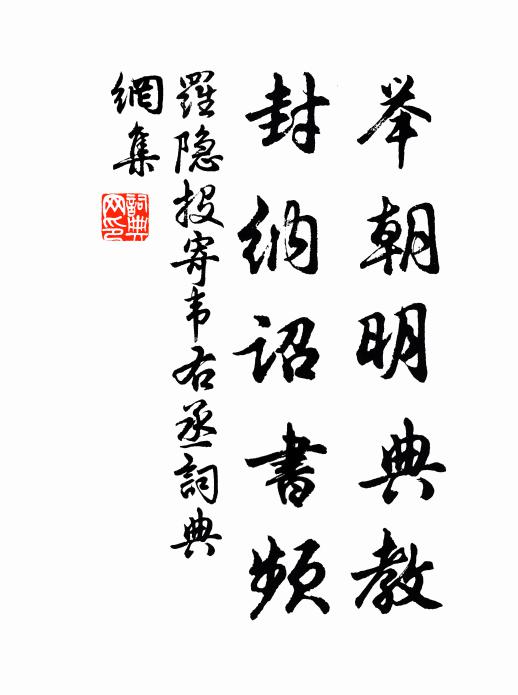 举朝明典教
封纳诏書频
羅隐投寄韦右丞詞典
網集
詞典
网印